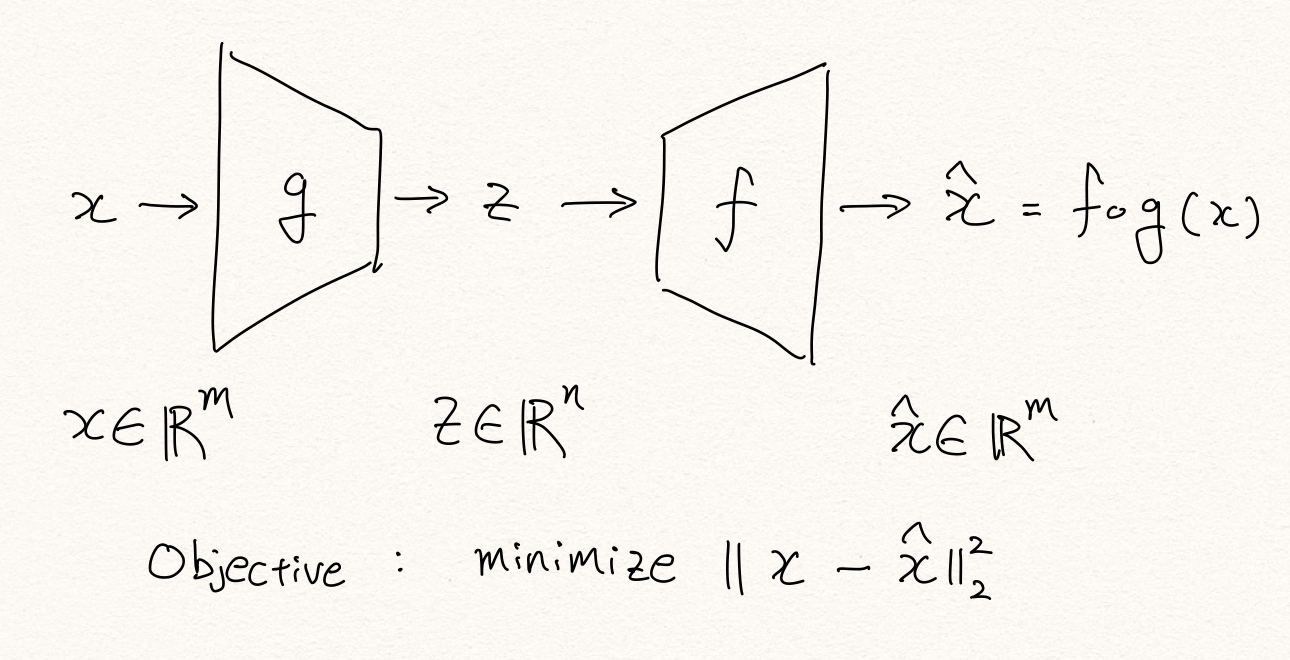 x → g → z → f → x̂ = f∘g(x)
x ∈ ℝᵐ z ∈ ℝⁿ x̂ ∈ ℝᵐ
Objective : minimize ‖ x − x̂ ‖₂²